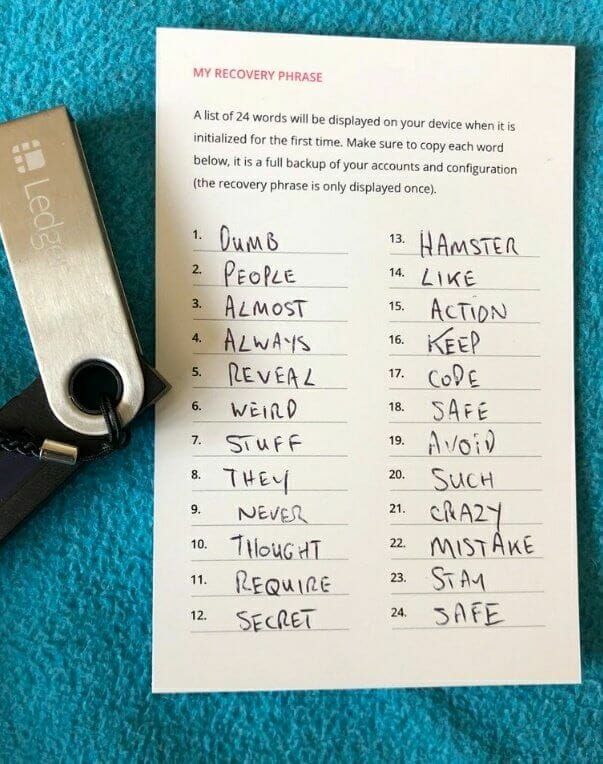 Ledger
MY RECOVERY PHRASE
A list of 24 words will be displayed on your device when it is
initialized for the first time. Make sure to copy each word
below, it is a full backup of your accounts and configuration
(the recovery phrase is only displayed once).
1. DUMB
2. PEOPLE
3. ALMOST
4. ALWAYS
5. REVEAL
6. WEIRD
7. STUFF
8. THEY
9. NEVER
10. THOUGHT
11. REQUIRE
12. SECRET
13. HAMSTER
14. LIKE
15. ACTION
16. KEEP
17. CODE
18. SAFE
19. AVOID
20. SUCH
21. CRAZY
22. MISTAKE
23. STAY
24. SAFE